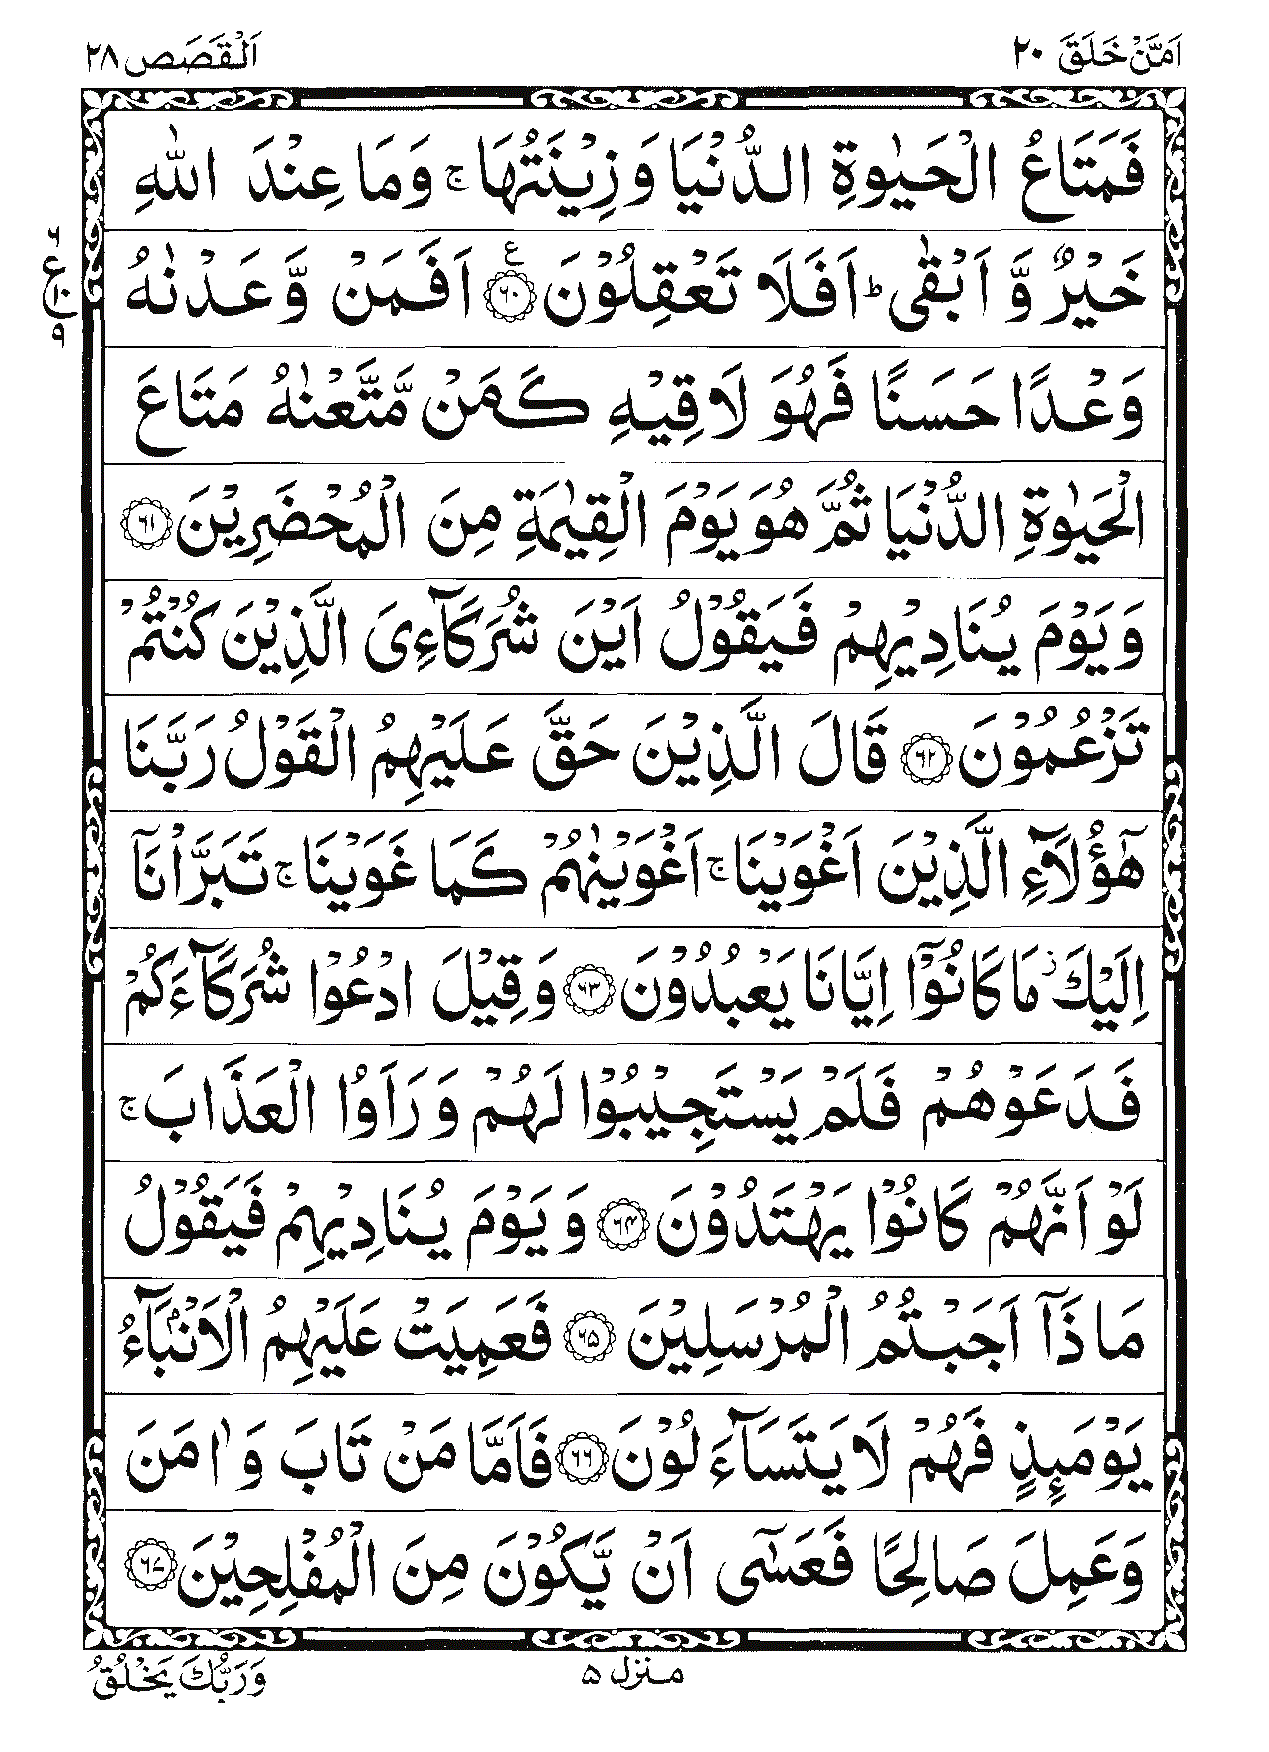 اَمَّنْ خَلَقَ ٢٠
اَلْقَصَص ٢٨
فَمَتَاعُ الْحَيٰوةِ الدُّنْيَا وَزِيْنَتُهَا ۚ وَمَا عِنْدَ اللّٰهِ
خَيْرٌ وَّ اَبْقٰى ؕ اَفَلَا تَعْقِلُوْنَ ﴿٦٠﴾ ع اَفَمَنْ وَّعَدْنٰهُ
٦
ع
١٠
٩
وَعْدًا حَسَنًا فَهُوَ لَاقِيْهِ كَمَنْ مَّتَّعْنٰهُ مَتَاعَ
الْحَيٰوةِ الدُّنْيَا ثُمَّ هُوَ يَوْمَ الْقِيٰمَةِ مِنَ الْمُحْضَرِيْنَ ﴿٦١﴾
وَيَوْمَ يُنَادِيْهِمْ فَيَقُوْلُ اَيْنَ شُرَكَآءِىَ الَّذِيْنَ كُنْتُمْ
تَزْعُمُوْنَ ﴿٦٢﴾ قَالَ الَّذِيْنَ حَقَّ عَلَيْهِمُ الْقَوْلُ رَبَّنَا
هٰٓؤُلَآءِ الَّذِيْنَ اَغْوَيْنَا ۚ اَغْوَيْنٰهُمْ كَمَا غَوَيْنَا ۚ تَبَرَّاْنَآ
اِلَيْكَ ؗ مَا كَانُوْٓا اِيَّانَا يَعْبُدُوْنَ ﴿٦٣﴾ وَقِيْلَ ادْعُوْا شُرَكَآءَكُمْ
فَدَعَوْهُمْ فَلَمْ يَسْتَجِيْبُوْا لَهُمْ وَرَاَوُا الْعَذَابَ ۚ
لَوْ اَنَّهُمْ كَانُوْا يَهْتَدُوْنَ ﴿٦٤﴾ وَيَوْمَ يُنَادِيْهِمْ فَيَقُوْلُ
مَاذَآ اَجَبْتُمُ الْمُرْسَلِيْنَ ﴿٦٥﴾ فَعَمِيَتْ عَلَيْهِمُ الْاَنْۢبَآءُ
يَوْمَئِذٍ فَهُمْ لَا يَتَسَآءَلُوْنَ ﴿٦٦﴾ فَاَمَّا مَنْ تَابَ وَاٰمَنَ
وَعَمِلَ صَالِحًا فَعَسٰٓى اَنْ يَّكُوْنَ مِنَ الْمُفْلِحِيْنَ ﴿٦٧﴾
منزل ۵
وَرَبُّكَ يَخْلُقُ